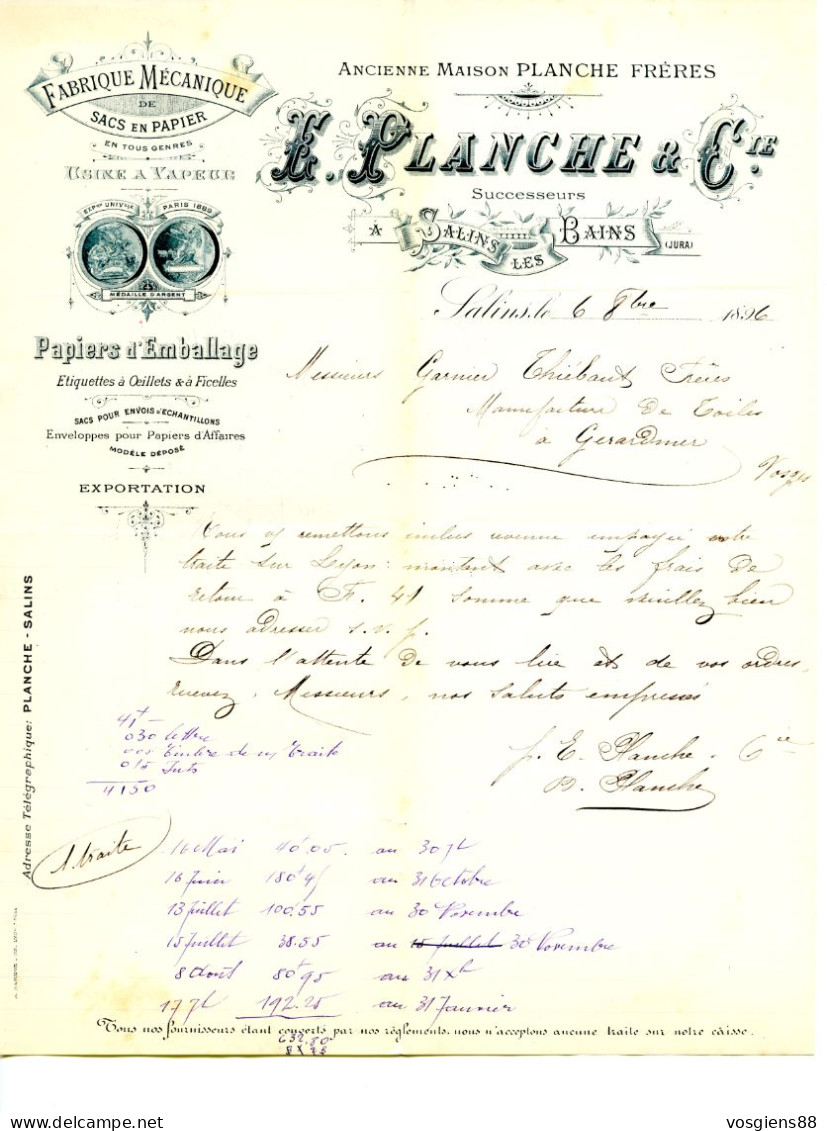 FABRIQUE MÉCANIQUE
DE
SACS EN PAPIER
EN TOUS GENRES
USINE A VAPEUR
EXP^on UNIV^lle PARIS 1889
MÉDAILLE D'ARGENT
Papiers d'Emballage
Etiquettes à Œillets & à Ficelles
SACS POUR ENVOIS D'ÉCHANTILLONS
Enveloppes pour Papiers d'Affaires
MODÈLE DÉPOSÉ
EXPORTATION
ANCIENNE MAISON PLANCHE FRÈRES
E. PLANCHE & CIE.
Successeurs
À SALINS LES BAINS (JURA)
Salins, le 6 8bre 1896
Messieurs Garnier Thiébaut Frères
Manufacture de Toiles
à Gerardmer
Vosges
Nous vs remettons inclus revenue impayée votre
traite sur Lyon: montant avec les frais de
retour à Fr. 41 somme que veuillez bien
nous adresser s.v.p.
Dans l'attente de vous lire et de vos ordres,
recevez, Messieurs, nos saluts empressés
p. E. Planche. Cie
Planche
41 —
030 lettre
Timbre de n/ traite
015
4150
Adresse Télégraphique: PLANCHE - SALINS
1 traite
16 Mai 40.05 au 30 7b
16 Juin 180 45 au 31 Octobre
13 Juillet 100.55 au 30 Novembre
15 Juillet 38.55 au 15 Juillet 30 Novembre
8 Août 80 95 au 31 Xb
17 7b 192.25 au 31 Janvier
Tous nos fournisseurs étant couverts par nos règlements, nous n'acceptons aucune traite sur notre caisse.
632.80
vosgiens88